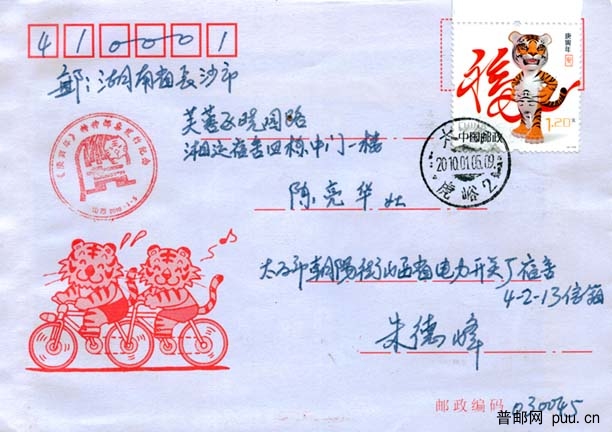 410001
邮：湖南省长沙市
芙蓉区晓园路
湘运宿舍四栋中门一楼
陈亮华 收
福
庚寅年
1.20元
中国邮政
CHINA
太
2010.01.05.09
虎峪 2
《庚寅年》特种邮票发行纪念
2010-1-5
太原市朝阳街山西省电力开关厂宿舍
4-2-13信箱
朱德峰
邮政编码 030045
普邮网 puu.cn